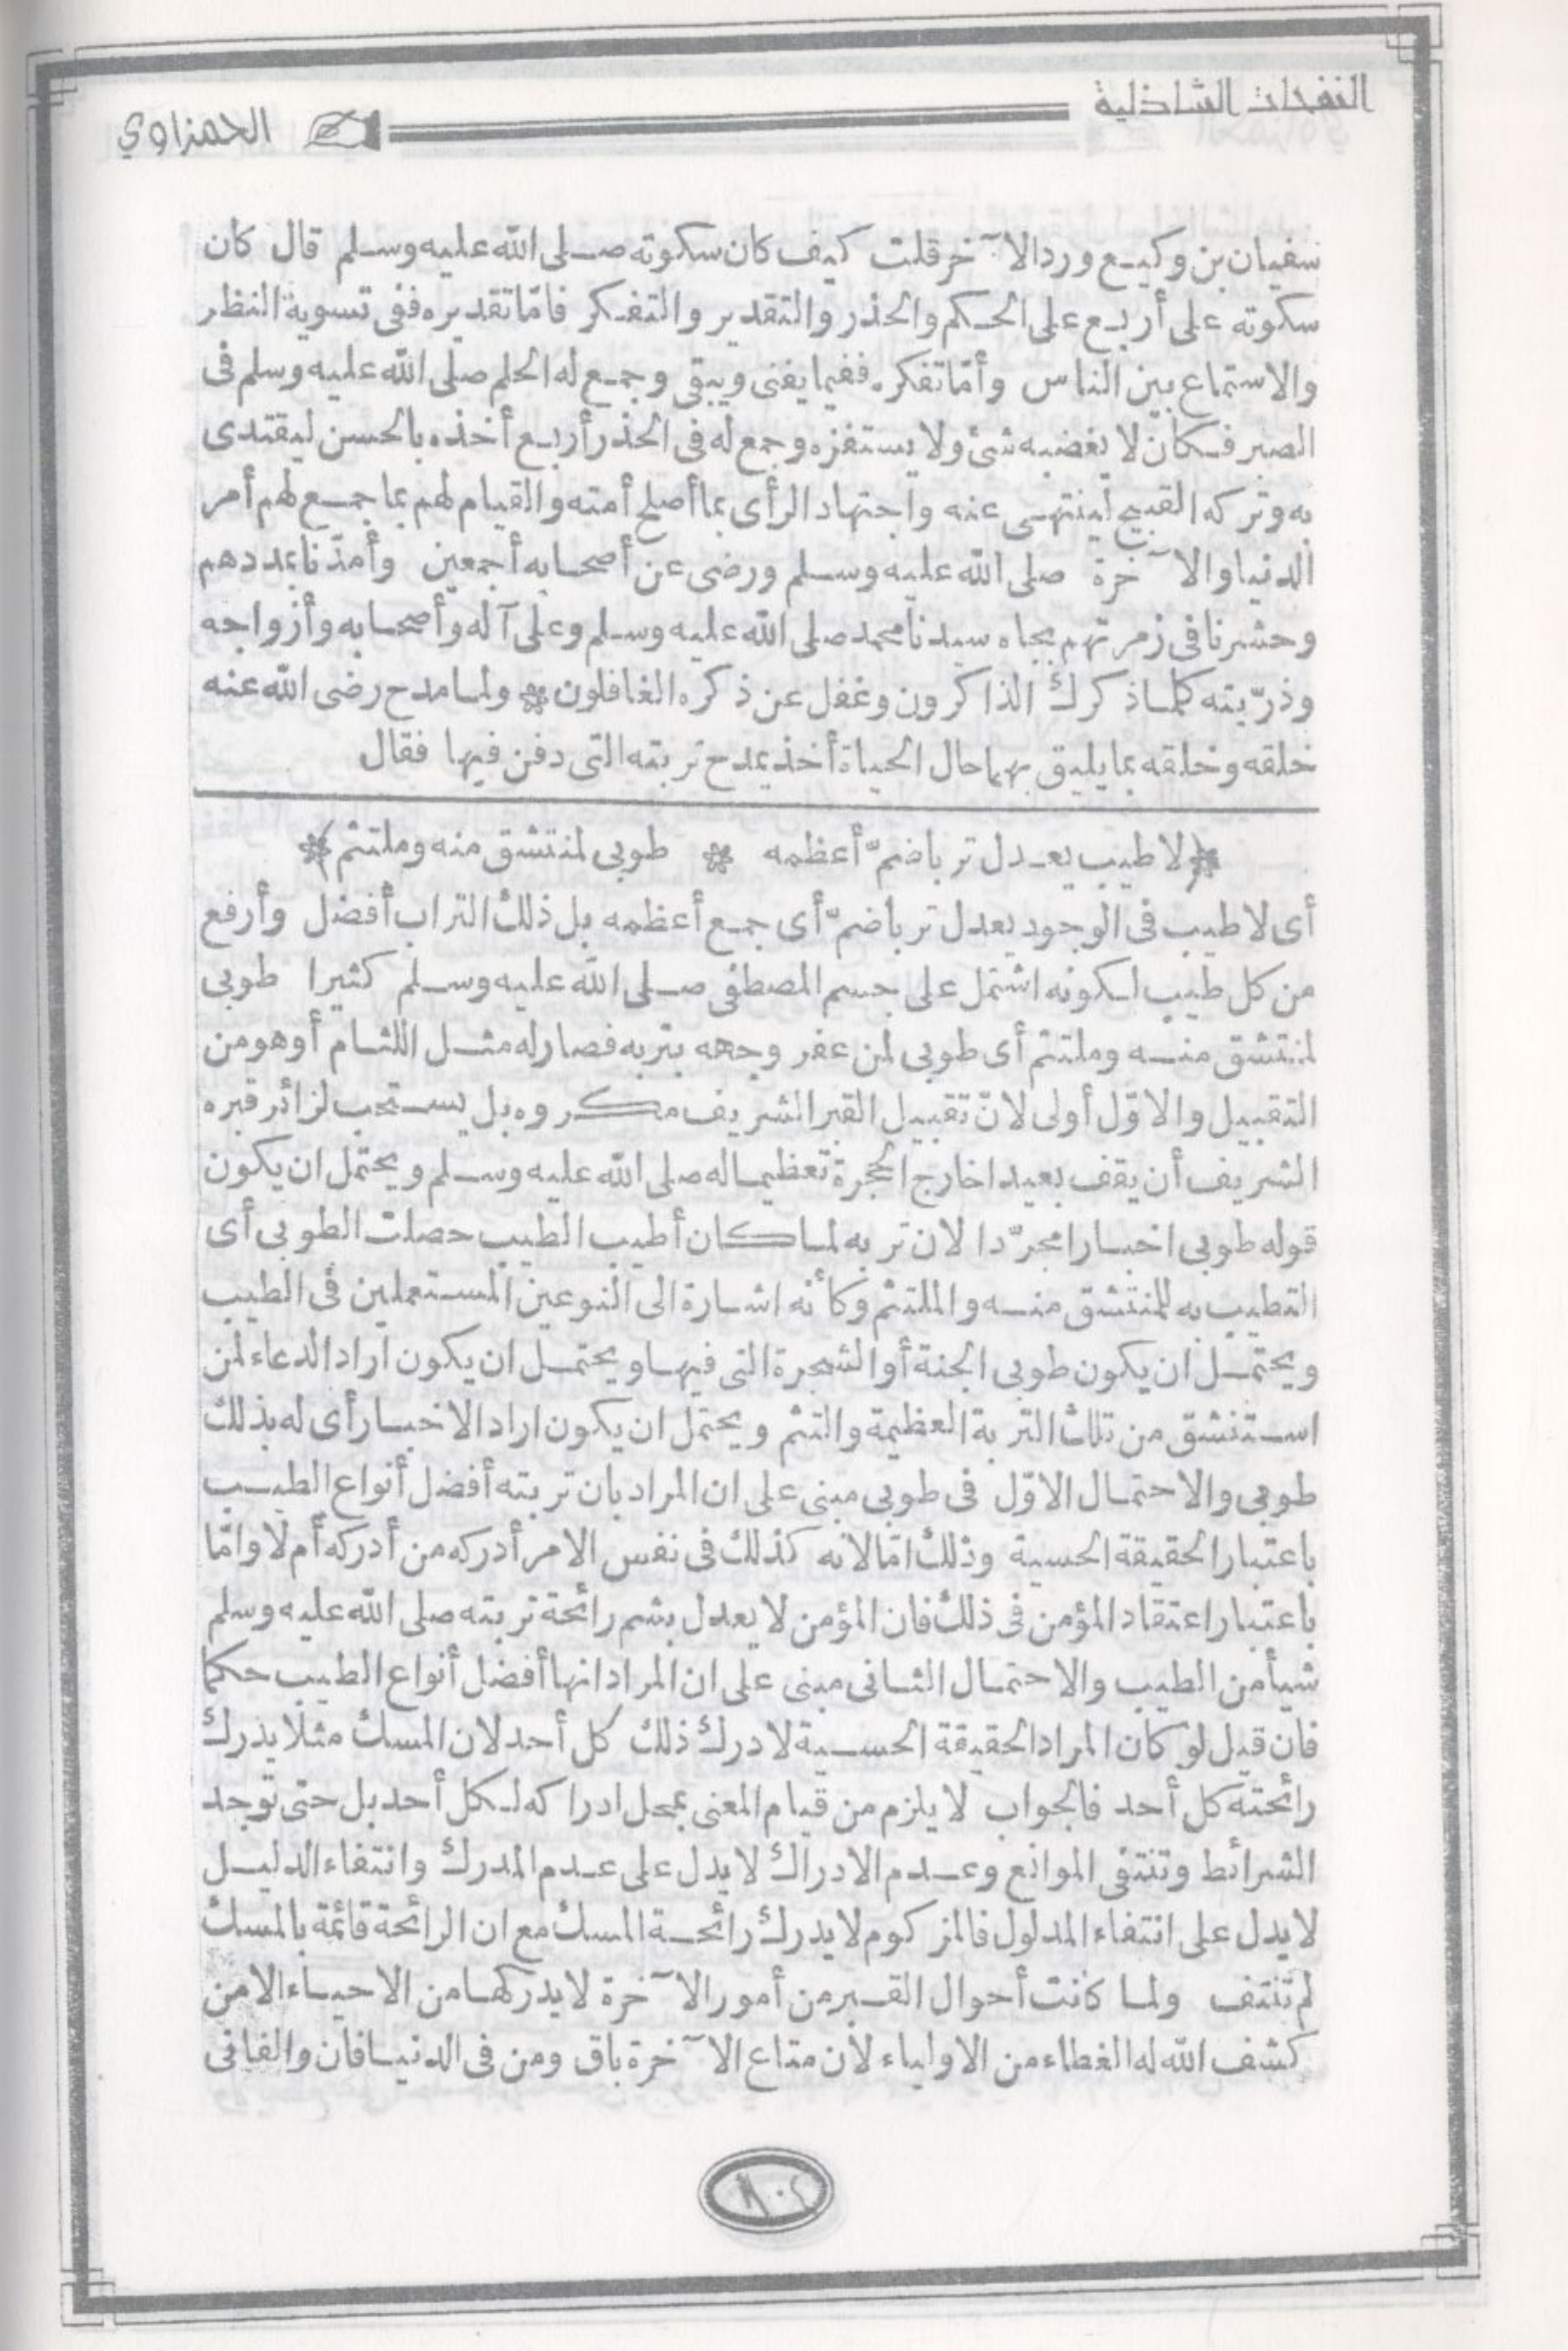 النفحات الشاذلية
الحمزاوي
سفيان بن وكيع ورد الآخر قلت كيف كان سكوته صلى الله عليه وسلم قال كان
سكوته على أربع على الحكم والحذر والتقدير والتفكر فامّا تقديره ففى تسوية النظر
والاستماع بين الناس وأمّا تفكره ففيما يفنى ويبقى وجمع له الحلم صلى الله عليه وسلم فى
الصبر فكان لا يغضبه شئ ولا يستفزه وجمع له فى الحذر أربع أخذه بالحسن ليقتدى
به وتركه القبيح لينتهى عنه واجتهاد الرأى بما أصلح أمته والقيام لهم بما جمع لهم أمر
الدنيا والآخرة صلى الله عليه وسلم ورضى عن أصحابه أجمعين وأمدّنا بمددهم
وحشرنا فى زمرتهم بجاه سيدنا محمد صلى الله عليه وسلم وعلى آله وأصحابه وأزواجه
وذرّيته كلما ذكرك الذاكرون وغفل عن ذكره الغافلون * ولما مدح رضى الله عنه
خلقه وخلقه بما يليق بهما حال الحياة أخذ يمدح تربته التى دفن فيها فقال
* لا طيب يعدل تربا ضمّ أعظمه * طوبى لمنتشق منه وملتثم *
أى لا طيب فى الوجود يعدل تربا ضمّ أى جمع أعظمه بل ذلك التراب أفضل وأرفع
من كل طيب لكونه اشتمل على جسم المصطفى صلى الله عليه وسلم كثيرا طوبى
لمنتشق منه وملتثم أى طوبى لمن عفر وجهه بتربه فصار له مثل اللثام أو هو من
التقبيل والاوّل أولى لانّ تقبيل القبر الشريف مكروه بل يستحب لزائر قبره
الشريف أن يقف بعيدا خارج الحجرة تعظيما له صلى الله عليه وسلم ويحتمل ان يكون
قوله طوبى اخبارا مجرّدا لان تربه لما كان أطيب الطيب حصلت الطوبى أى
التطيب به للمنتشق منه والملتثم وكأنه اشارة الى النوعين المستعملين فى الطيب
ويحتمل ان يكون طوبى الجنة أو الشجرة التى فيها ويحتمل ان يكون أراد الدعاء لمن
استنشق من تلك التربة العظيمة والتثم ويحتمل ان يكون اراد الاخبار أى له بذلك
طوبى والاحتمال الاوّل فى طوبى مبنى على ان المراد بان تربته أفضل أنواع الطيب
باعتبار الحقيقة الحسية وذلك امّا لانه كذلك فى نفس الامر أدركه من أدركه أم لا وامّا
باعتبار اعتقاد المؤمن فى ذلك فان المؤمن لا يعدل بشم رائحة تربته صلى الله عليه وسلم
شيأ من الطيب والاحتمال الثانى مبنى على ان المراد انها أفضل أنواع الطيب حكما
فان قيل لو كان المراد الحقيقة الحسية لادرك ذلك كل أحد لان المسك مثلا يدرك
رائحته كل أحد فالجواب لا يلزم من قيام المعنى بمحل ادراكه لكل أحد بل حتى توجد
الشرائط وتنتفى الموانع وعدم الادراك لا يدل على عدم المدرك وانتفاء الدليل
لا يدل على انتفاء المدلول فالمزكوم لا يدرك رائحة المسك مع ان الرائحة قائمة بالمسك
لم تنتف ولما كانت أحوال القبر من أمور الآخرة لا يدركها من الاحياء الا من
كشف الله له الغطاء من الاولياء لان متاع الآخرة باق ومن فى الدنيا فان والفانى